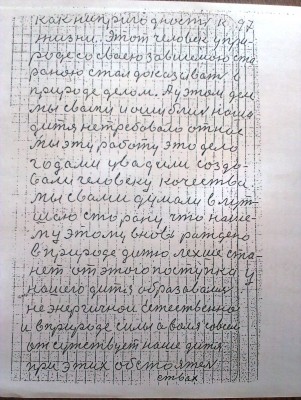 как нипригодность к 97
жизни. Этот человек у при-
роде со своею зависимою сто
раною стал доказывать в
природе делом. А у этом деле
мы с вами и ошиблись наше
дитя не требовало от нас
мы эту работу это дело
годами увадили созда-
вали человеку качества
мы с вами думали в луч-
шею сторану что наше-
му этому вновь раждено
в природе дитю лехше ста-
нет от этого поступка у
нашего дитя образавалися
не энергичной естественно
и в природе силы а воля совсем
отсутствует наше дитя
при этих обстоятел
ствах